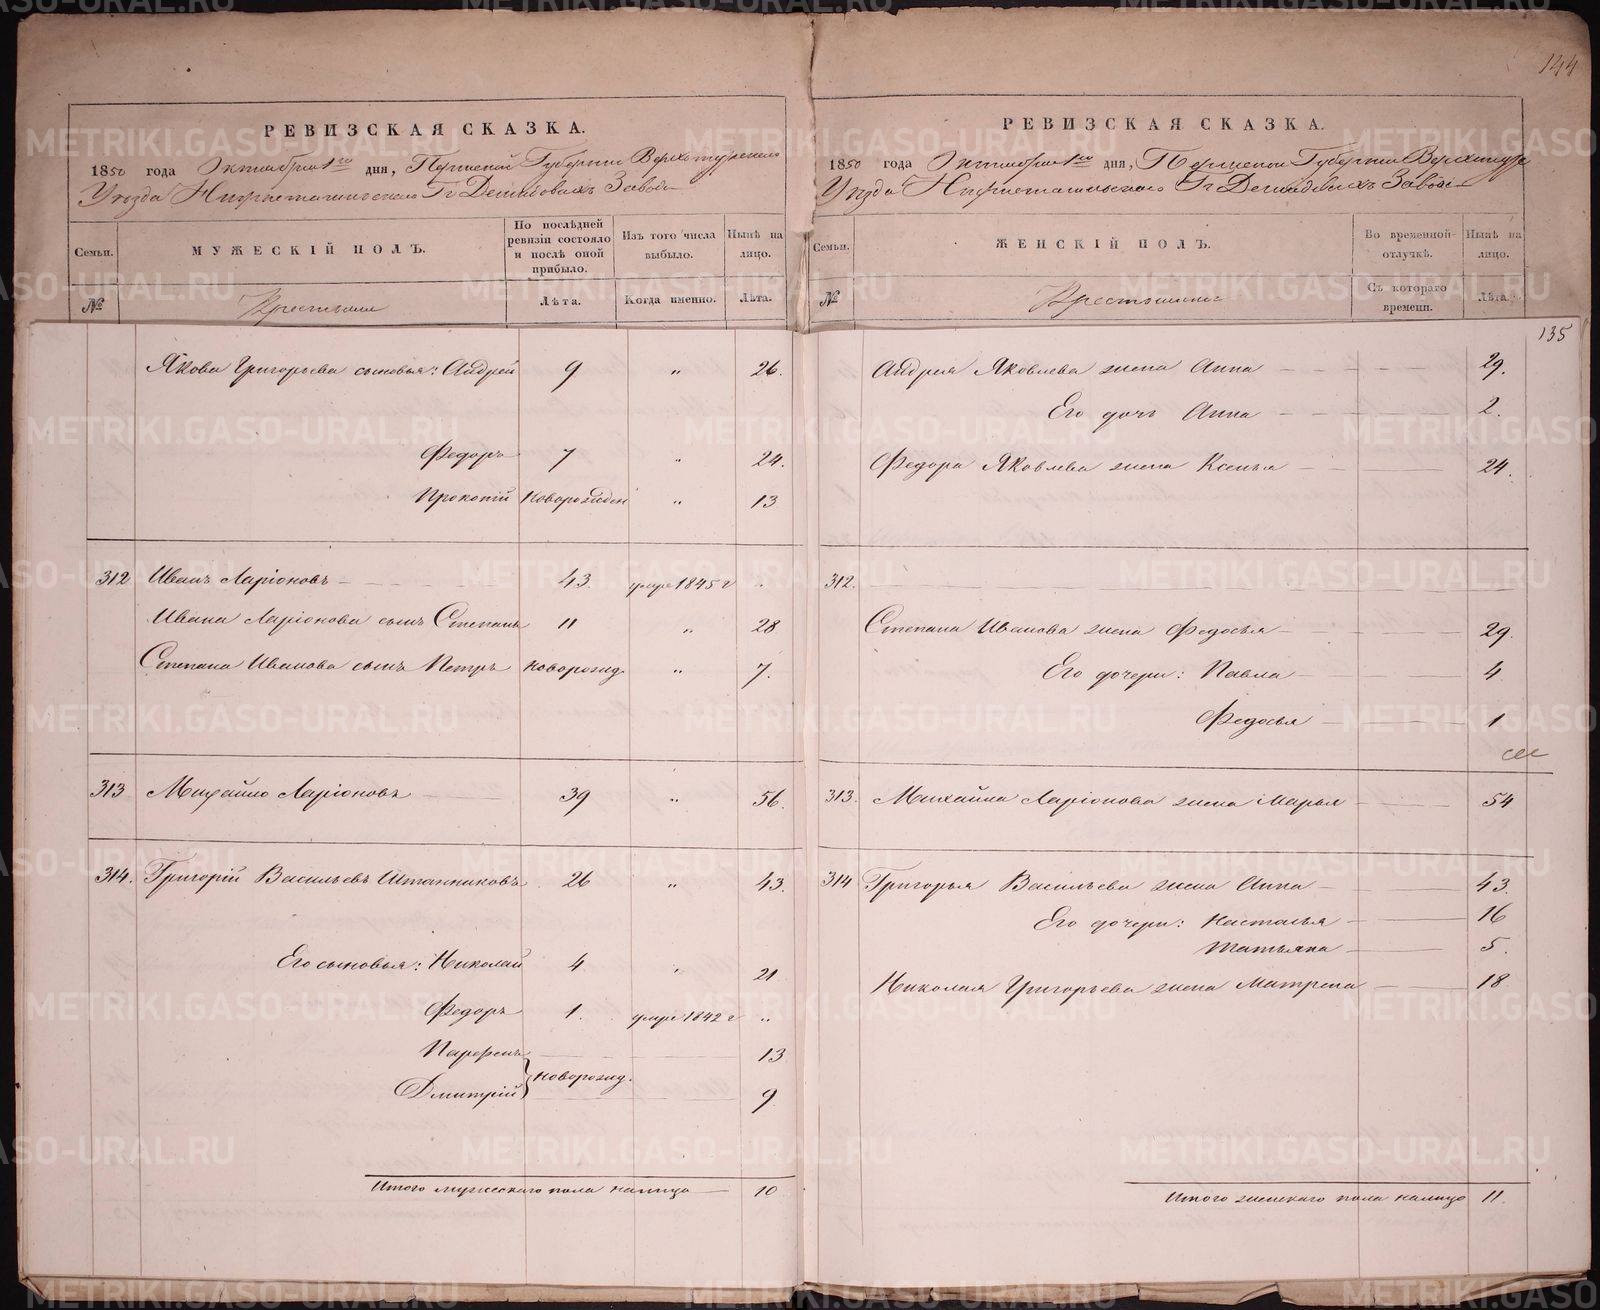 144
РЕВИЗСКАЯ СКАЗКА.
1850 года Октября 1го дня, Пермской Губернии Верхотурскаго
Уезда Нижнетагильскаго Гг Демидовыхъ Завода
Семьи.
МУЖЕСКІЙ ПОЛЪ.
По послѣдней ревизіи состояло и послѣ оной прибыло.
Изъ того числа выбыло.
Нынѣ на лицо.
№
Крестьяне
Лѣта.
Когда именно.
Лѣта.
Якова Григорьева сыновья: Андрей 9 " 26.
Федоръ 7 " 24.
Прокопій новорожден " 13
312 Иванъ Ларіоновъ 43. умре 1845 г "
Ивана Ларіонова сынъ Степанъ 11 " 28
Степана Иванова сынъ Петръ новорожд. " 7.
313 Михайло Ларіоновъ 39 " 56.
314. Григорій Васильевъ Штанниковъ 26 " 43.
Его сыновья: Николай 4 " 21
Федоръ 1. умре 1842 г "
Парфенъ 13
новорожд.
Дмитрій 9
Итого мужескаго пола налицо 10
РЕВИЗСКАЯ СКАЗКА.
1850 года Октября 1го дня, Пермской Губернии Верхотурс
Уезда Нижнетагильскаго Гг Демидовыхъ Завода
Семьи.
ЖЕНСКІЙ ПОЛЪ.
Во временной отлучкѣ.
Нынѣ на лицо.
№
Крестьянки
Съ котораго времени.
Лѣта.
135
Андрея Яковлева жена Анна 29.
Его дочь Анна 2.
Федора Яковлева жена Ксенья 24.
312.
Степана Иванова жена Федосья 29.
Его дочери: Павла 4
Федосья 1
313. Михайла Ларіонова жена Марья 54
314 Григорья Васильева жена Анна 43.
Его дочери: Насталья 16
Татьяна 5.
Николая Григорьева жена Матрена 18
Итого женскаго пола налицо 11.
METRIKI.GASO-URAL.RU